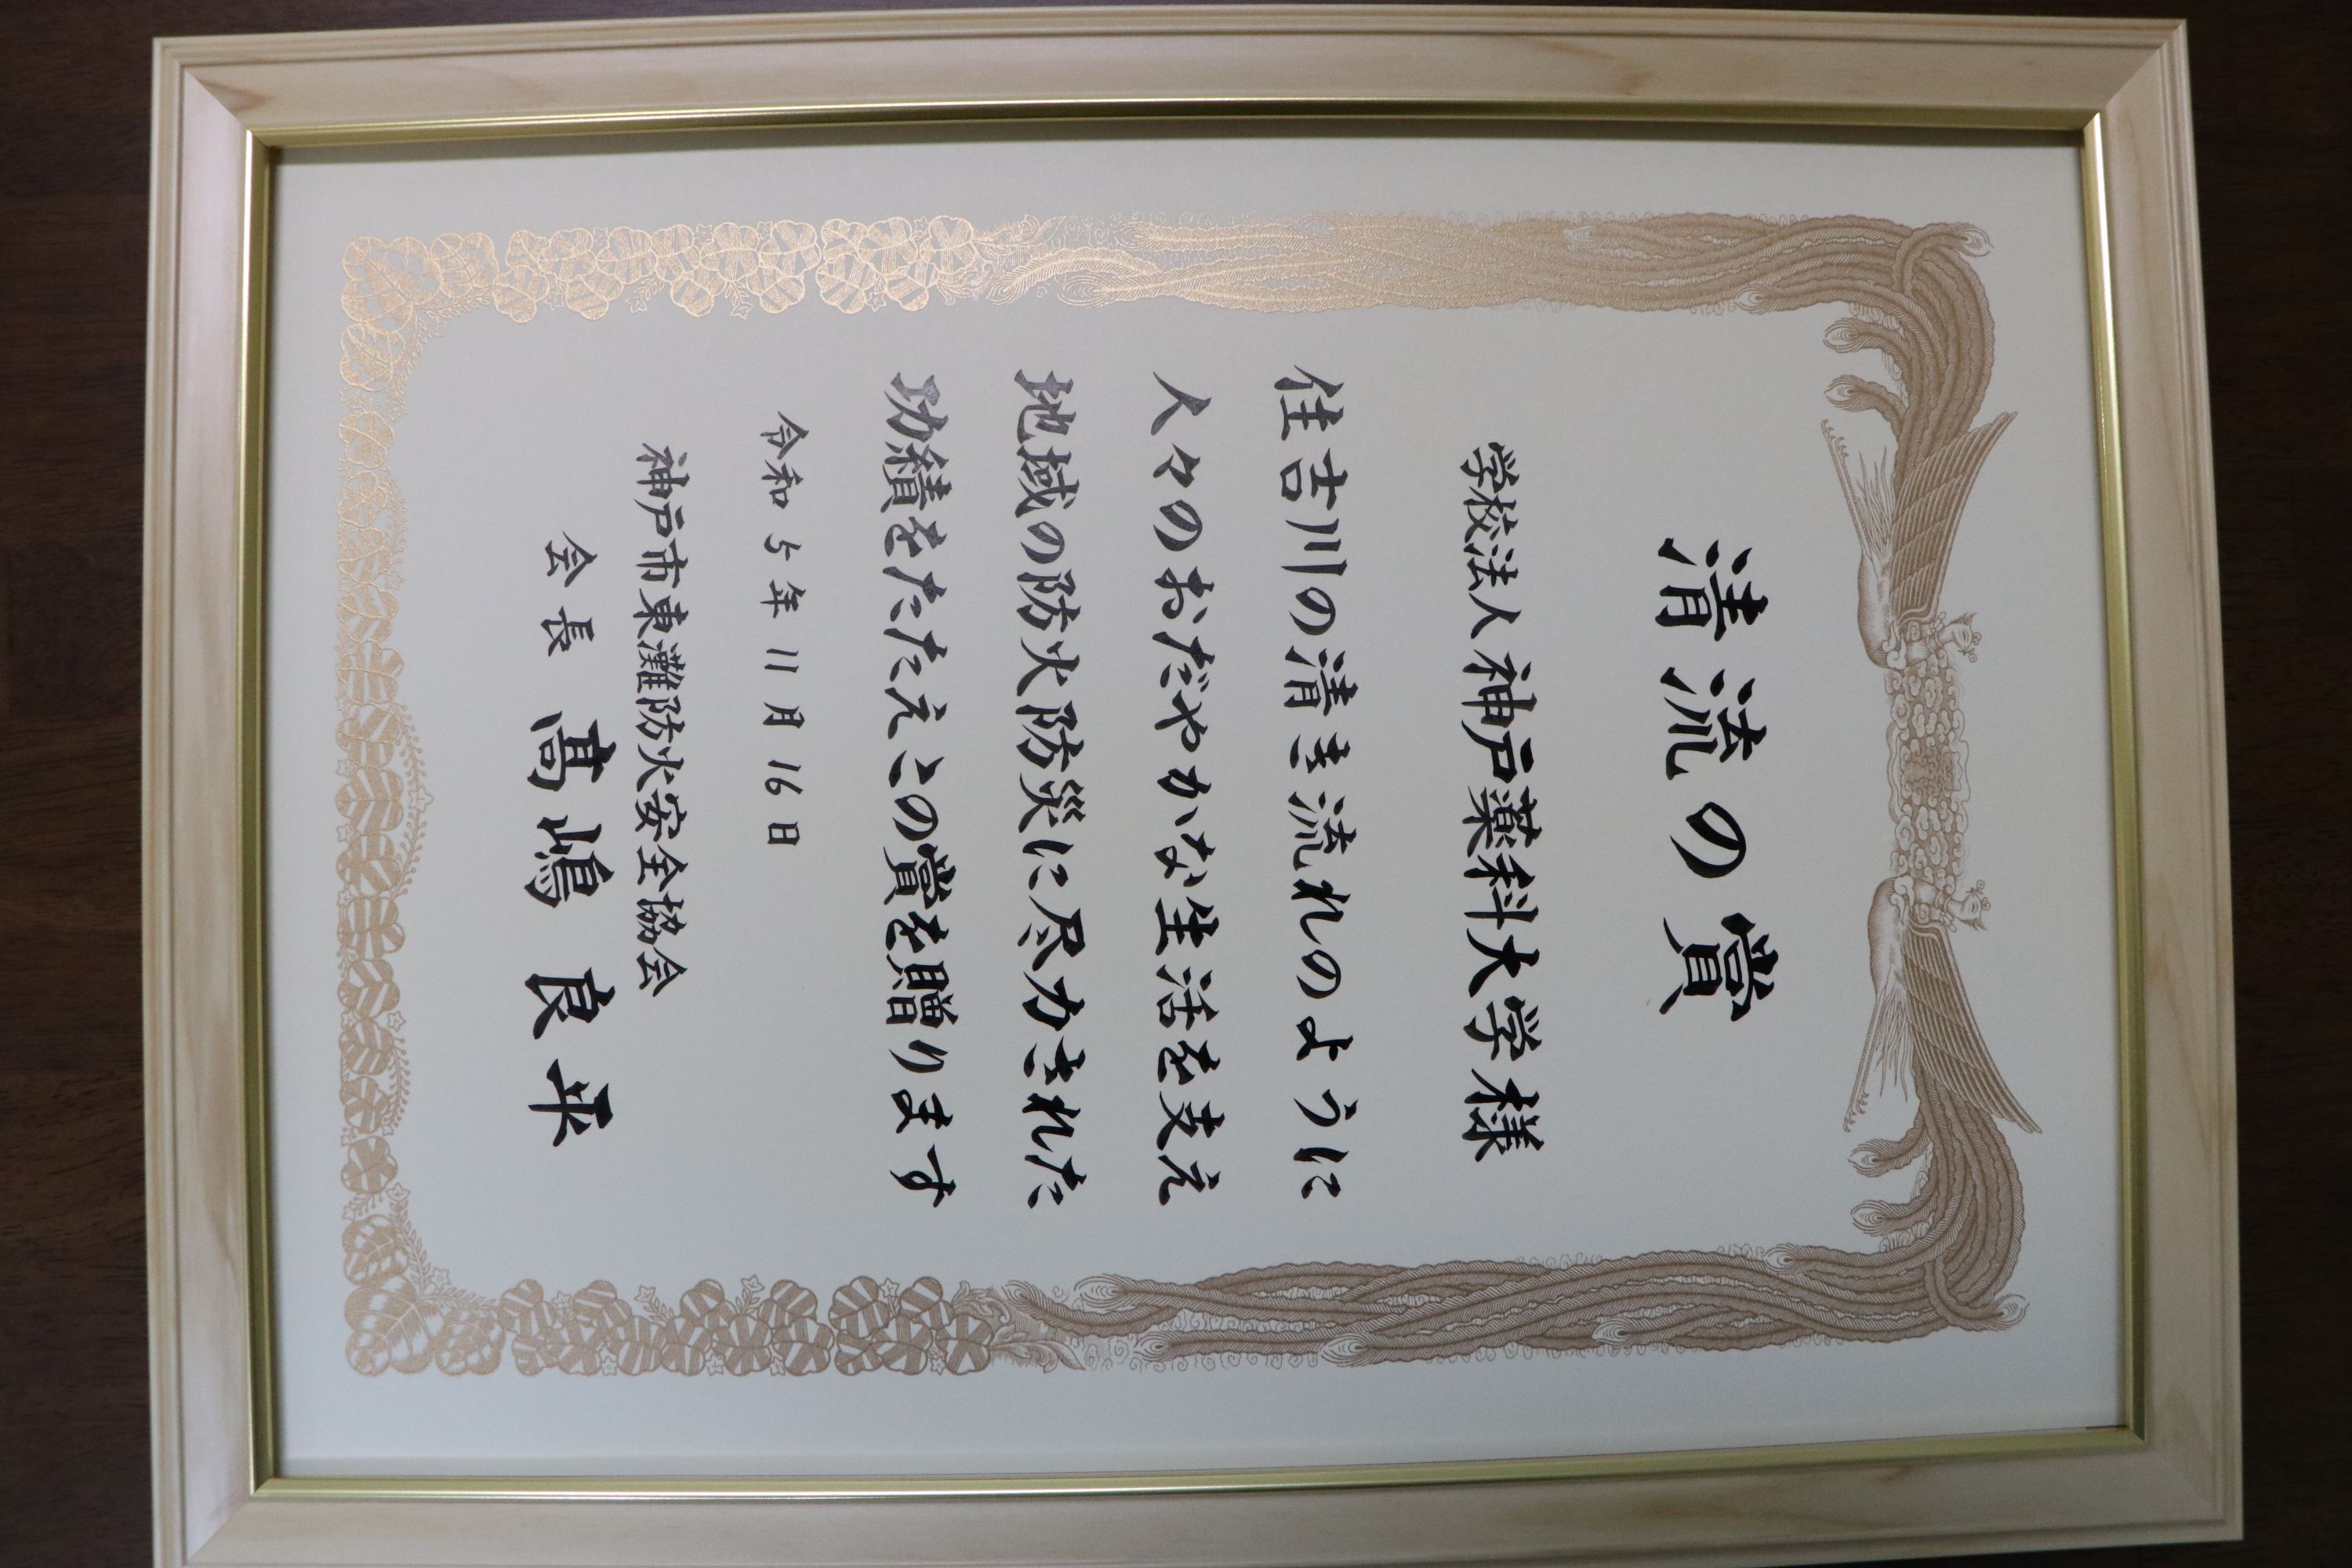 清流の賞
学校法人神戸薬科大学様
住吉川の清き流れのように
人々のおだやかな生活を支え
地域の防火防災に尽力された
功績をたたえこの賞を贈ります
令和5年11月16日
神戸市東灘防火安全協会
会長 髙嶋良平